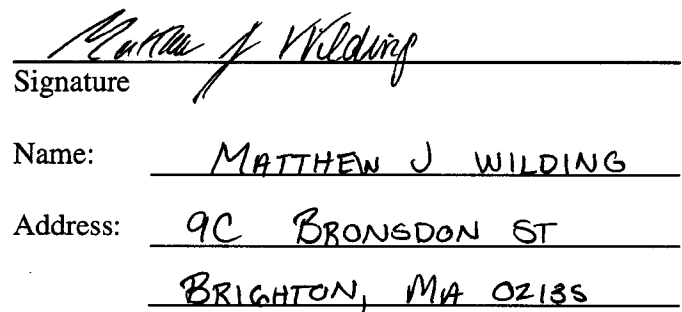 Matthew J Wilding
Signature
Name: MATTHEW J WILDING
Address: 9C BRONSDON ST
BRIGHTON, MA 02135